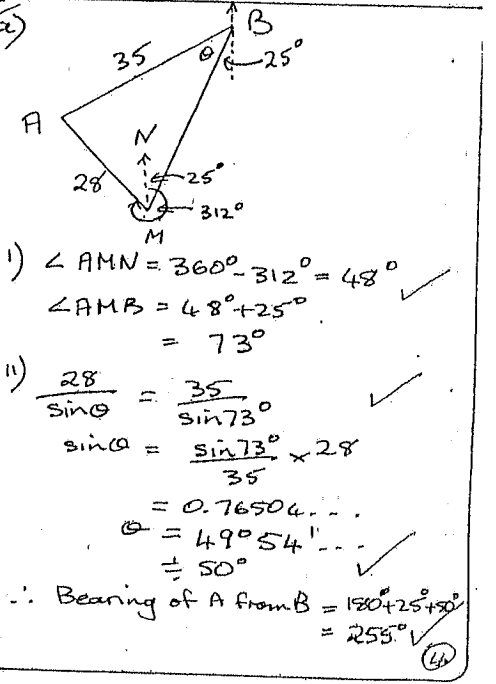 a)
B
35
θ
25°
A
N
28
25°
312°
M
i) ∠AMN = 360° - 312° = 48° ✓
∠AMB = 48° + 25°
= 73°
ii) 28/sinθ = 35/sin73° ✓
sinθ = sin73°/35 × 28
= 0.76504...
θ = 49°54'...
≑ 50° ✓
∴ Bearing of A from B = 180° + 25° + 50° ✓
= 255° ✓
4